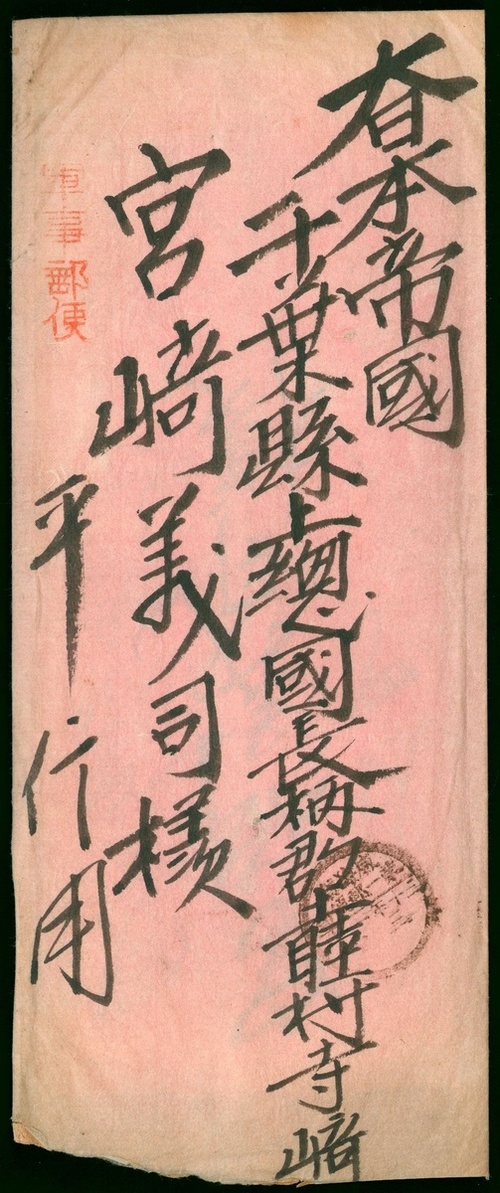 大日本帝國
千葉縣上總國長柄郡土睦村寺﨑
宮﨑義司様
平行用
軍事郵便